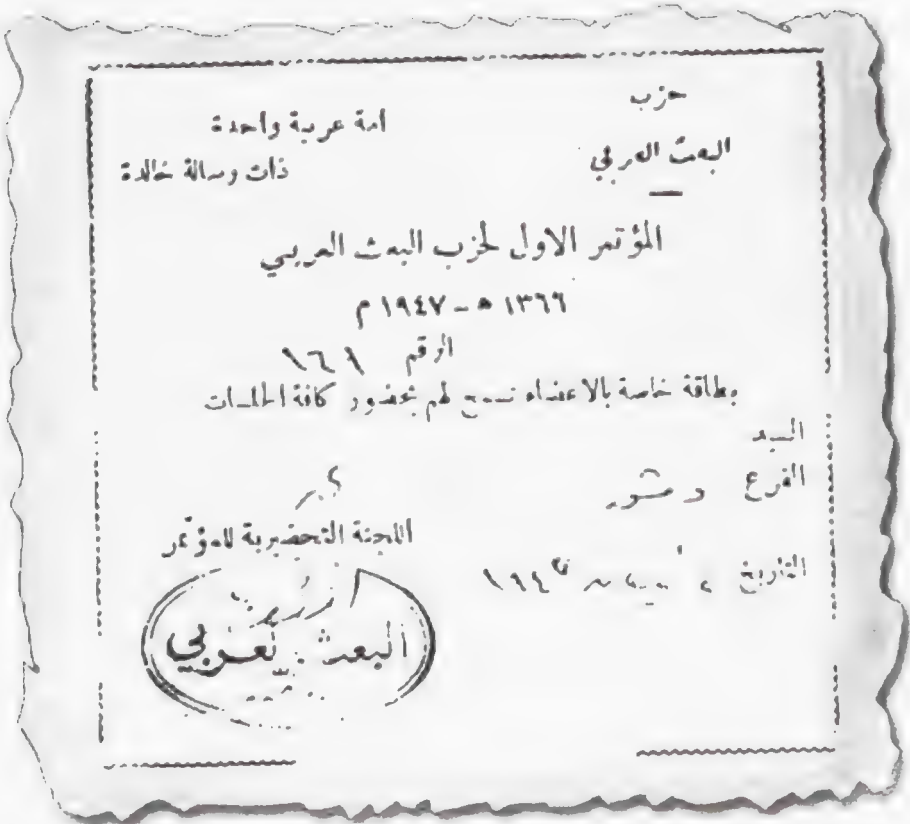 حزب
البعث العربي
امة عربية واحدة
ذات رسالة خالدة
المؤتمر الاول لحزب البعث العربي
١٣٦٦ ه – ١٩٤٧ م
الرقم ١٦١
بطاقة خاصة بالاعضاء تسمح لهم بحضور كافة الجلسات
السيد
الفرع دمشق
التاريخ
اللجنة التحضيرية للمؤتمر
البعث العربي